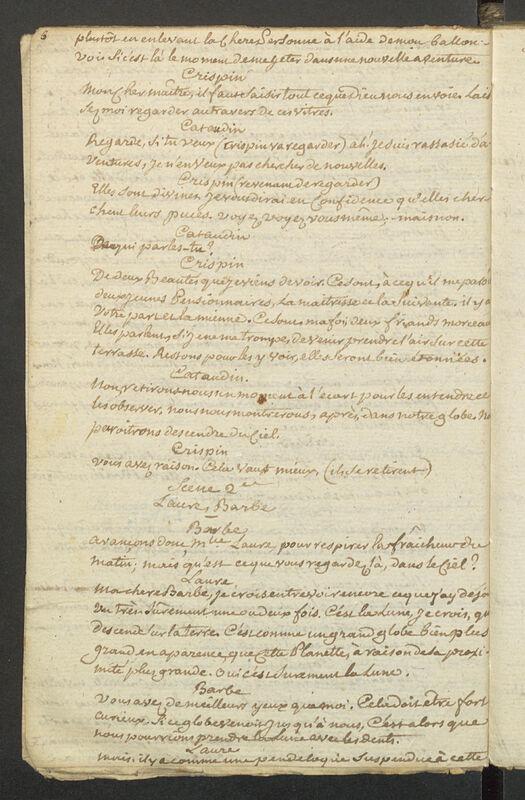 6
plutôt en enlevant la chere Personne à l'aide de mon ballon.
voir si c'est là le moment de me jeter dans une nouvelle aventure.
Crispin
Mon cher maitre, il faut saisir tout ce que Dieu nous envoie. Lais
sez moi regarder au travers de ces vitres.
Cataudin
Regarde, si tu veux (Crispin va regarder) ah! je suis rassasié d'a
ventures, je n'en veux pas chercher de nouvelles.
Crispin (revenant de regarder)
Elles sont divines, je vous dirai en confidence qu'elles cher
chent leurs puces. voyez, voyez vous même, mais non.
Cataudin
De qui parles-tu?
Crispin
De deux Beautes que je viens de voir. Ce sont, à ce qu'il me paroît
deux jeunes Pensionnaires, La maitresse et la Suivante, il y a
votre part et la mienne. Ce sont, ma foi, deux friands morceau
Elles parlent, si je ne me trompe, de venir prendre l'air sur cette
terrasse. Restons pour les y voir, elles seront bien étonnées.
Cataudin.
Non, retirons-nous un moment à l'écart pour les entendre et
les observer, nous nous montrerons, après, dans notre globe. No
paroitrons descendre du Ciel.
Crispin
vous avez raison. Cela vaut mieux, (ils se retirent)
Scene 2e
Laure, Barbe
Barbe
avançons donc Mlle Laure, pour respirer la fraîcheur du
matin; mais qu'est ce que vous regardez là, dans le Ciel?
Laure
Ma chere Barbe, je crois entrevoir encore ce que j'ay déjà
vu très surement une ou deux fois. C'est la Lune, je crois, qui
descend sur la terre. C'est comme un grand globe bien plus
grand en aparence que cette Planette, à raison de sa proxi-
mité plus grande. Oui c'est surement la Lune.
Barbe
Vous avez de meilleurs yeux que moi. Cela doit etre fort
curieux. Si ce globe venoit jusqu'à nous, C'est alors que
nous pourrions prendre la Lune avec les dents.
Laure
mais, il y a comme une pendeloque suspendue à cette